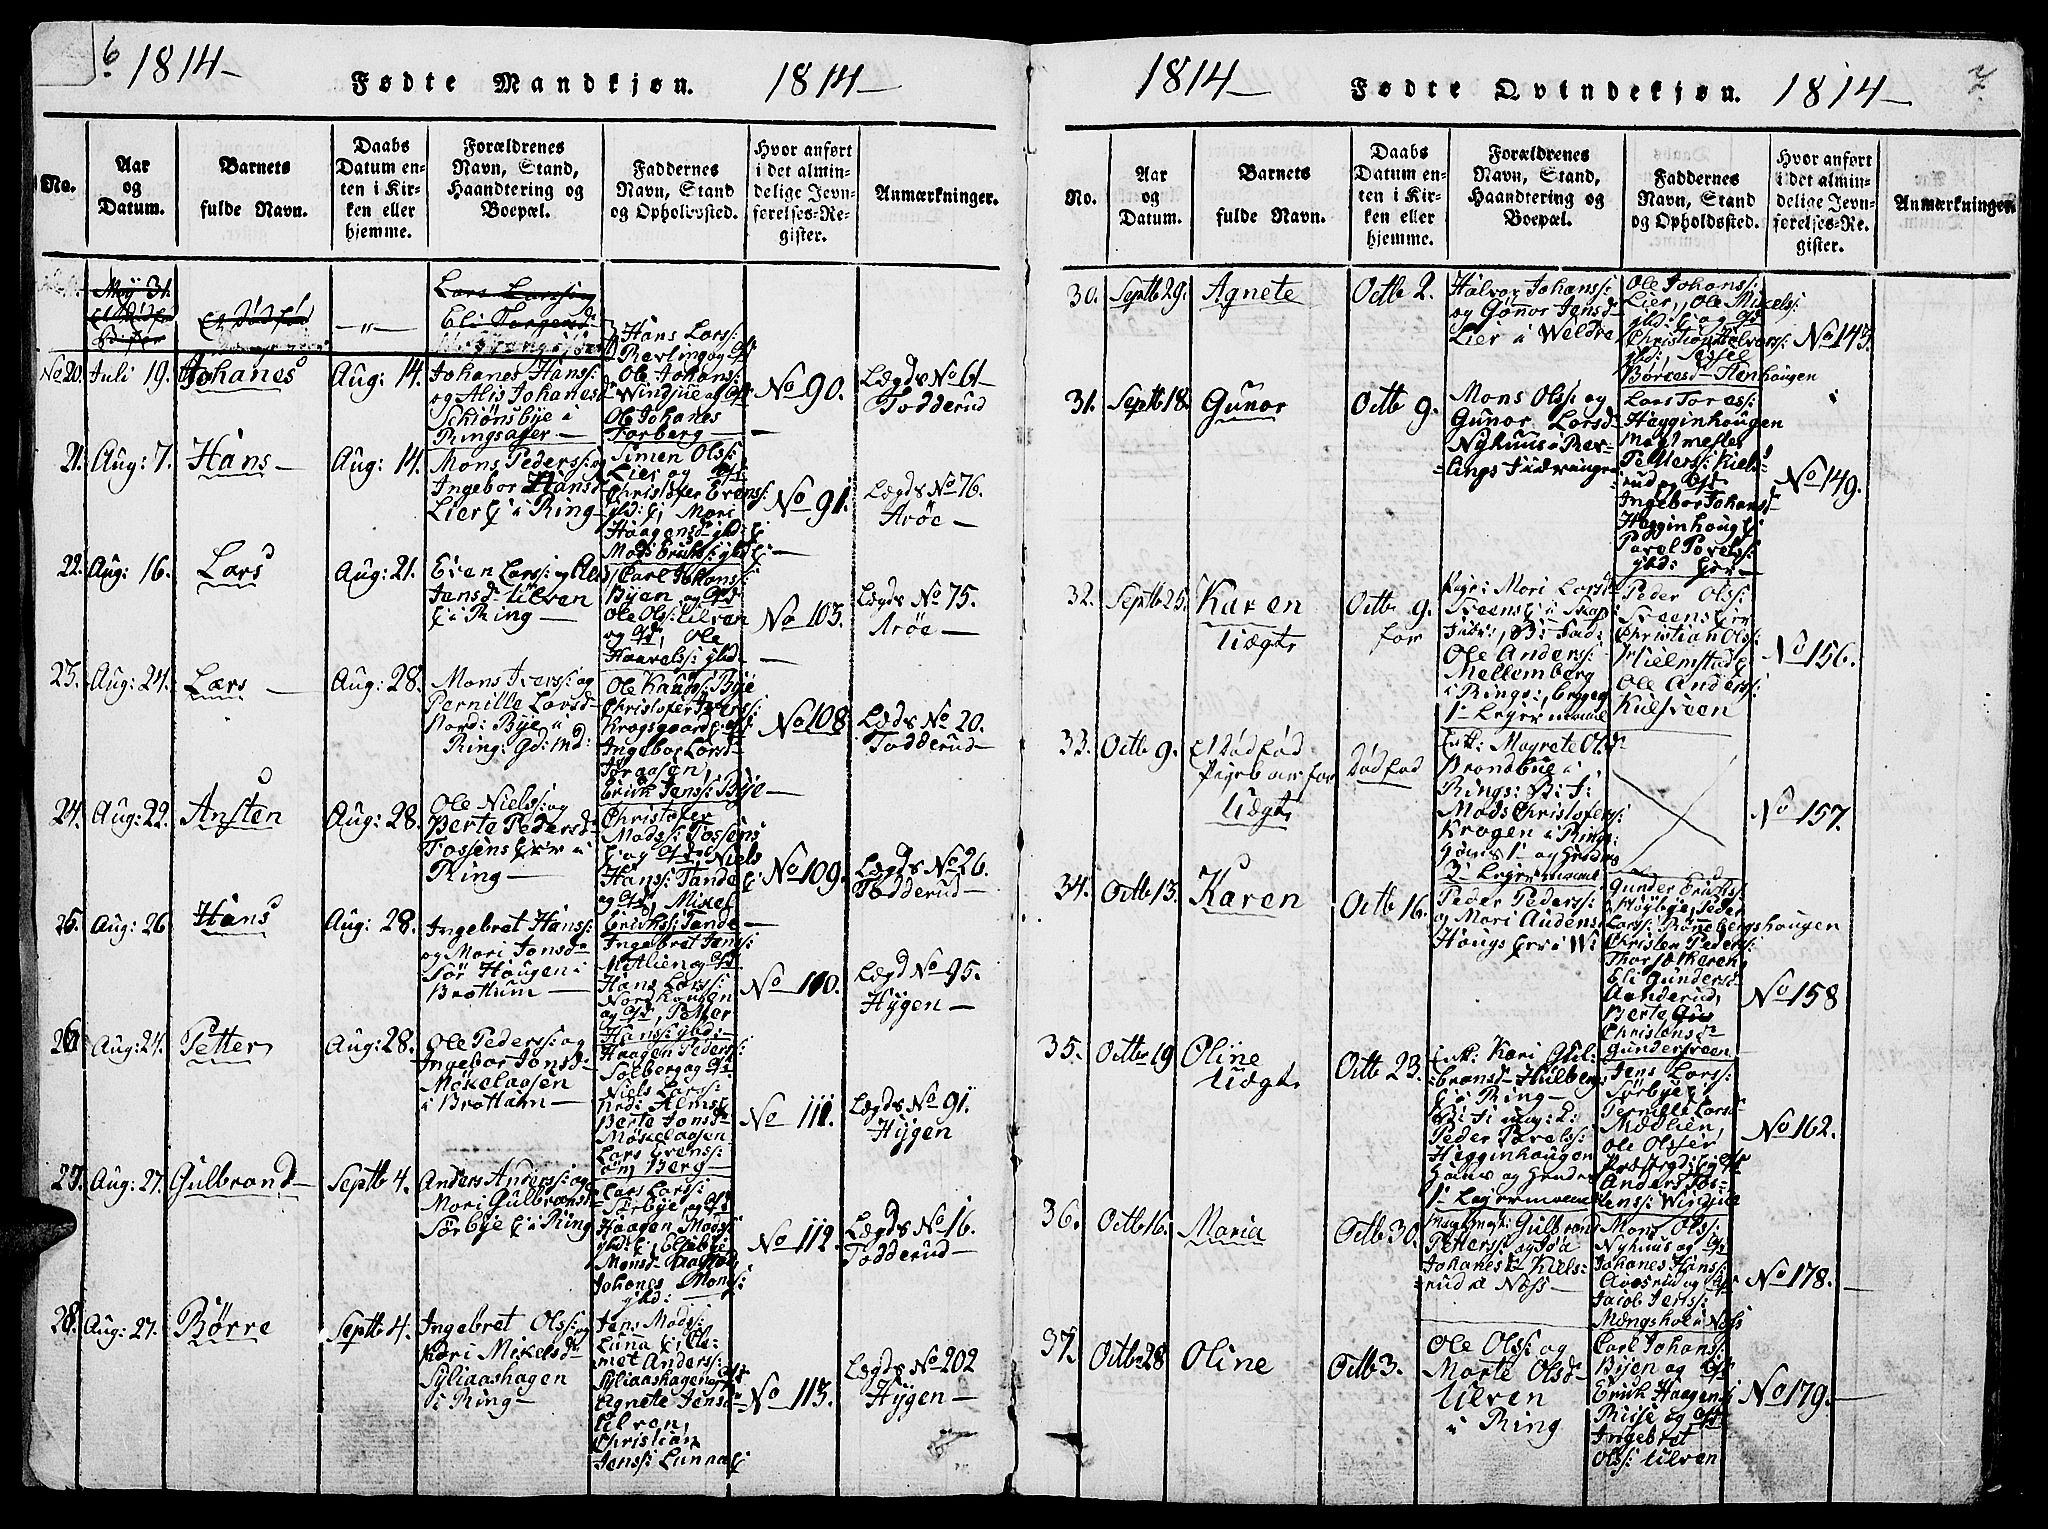 6
1814-
Fødte Mandkjøn.
1814-
No.
Aar
og
Datum.
Barnets
fulde Navn.
Daabs
Datum en-
ten i Kir-
ken eller
hjemme.
Forældrenes
Navn, Stand,
Haandtering og
Boepæl.
Faddernes
Navn, Stand
og Opholdssted.
Hvor anført
i det almin-
delige Jevn-
førelses-Re-
gister.
Anmærkninger.
May 31.
et Dødfød
-"-
Lars Larssøn
Eli Torgersd
No 20.
Juli 19.
Johanes
Aug: 14.
Johanes Hans:
og Alis Johanesd
Schiønsbye i
Ringsager-
Hans Lars:
Berling og
Ole Johans:
Windjue og
Ole Johanes
Torberg-
No 90.
Lægds No 61-
Todderud
21.
Aug: 7.
Hans-
Aug: 14.
Mons Peders: og
Ingebor Hansd
Lier E i Ring-
Simen Ols:
Lier og
Christofer Evens:
gld: Ej Mari
Haagensd gld E
Mads Erichs: gld E:
No 91.
Lægds No 76.
Arøe-
22.
Aug: 16.
Lars
Aug: 21.
Even Lars: og
Jensd Ulven
E i Ring-
Carl Johans:
Byen og
Ole Ols: Ulven
og Ole
Haavels: gld-
No 103.
Lægds No 75.
Arøe-
23.
Aug: 24.
Lars-
Aug: 28.
Mons Ivers: og
Pernille Larsd
Nord: Bye i
Ring: Gd: Md:
Ole Knuds: Bye
Christofer Ivers:
Krogsgaard
Ingebor Larsd
Toraasen,
Erick Jens: Bye-
No 108.
Lægds No 20.
Todderud-
24.
Aug: 22.
Ansten
Aug: 28.
Ole Niels: og
Berte Pedersd
Tossens Eier i
Ring-
Christofer
Mads: Tossens
E og Niels
Hans: Tande E
og Mikel
Erichs: Tande-
No 109.
Lægds No 26.
Todderud-
25.
Aug: 26.
Hans
Aug: 28.
Ingebret Hans:
og Mari Jonsd
Sør Haugen i
Brottum-
Ingebret Jens:
Mitlien og
Hans Lars:
Nordhaugen
og Petter
Hans: gld:-
No 110.
Lægd No 95.
Hygen-
26.
Aug: 24.
Petter
Aug: 28.
Ole Peders: og
Ingebor Jonsd
Møkelaasen
i Brottum-
Haagen Peders:
Solberg og
Niels Lars:
Berte Jonsd
Møkelaasen-
Lars Evens:
Berg-
No 111.
Lægds No 91.
Hygen
27.
Aug: 27.
Gulbrand-
Septb 4.
Anders Anders: og
Mari Gulbransd
Sørbye E i Ring
Lars Lars:
Sørbye og
Haagen Mads:
gld: E, Elsebye
Monsd
Johanes Mons:
gld:-
No 112.
Lægds No 16.
Todderud-
28.
Aug: 27.
Børre
Septb 4.
Ingebret Ols: og
Kari Mikelsd
Syliaashagen
i Ring-
Jens Mads:
Luna E; Cle-
met Anders:
Syliaashagen og
Agnete Jensd
Ulven,
Christian
Jens: Luna E
No 113.
Lægds No 202
Hygen-
1814-
Fødte Qvindekjøn.
1814-
7
No.
Aar
og
Datum.
Barnets
fulde Navn.
Daabs
Datum en-
ten i Kir-
ken eller
hjemme.
Forældrenes
Navn, Stand,
Haandtering og
Boepæl.
Faddernes
Navn, Stand
og Opholdssted.
Hvor anført
i det almin-
delige Jevn-
førelses-Re-
gister.
Anmærkninger.
30.
Septb 29.
Agnete
Octb 2.
Halvor Johans:
og Gunor Jensd
Lier i Weldre
Ole Johans:
Lier, Ole Mikels:
gld: E; og
Christian Halvors:
gld:, Sessel
Børresd Henhaugen
No 147.
31.
Septb 18.
Gunor
Octb 9.
Mons Ols: og
Gunor Larsd
Nyhuus i Ber-
lings
Lars Tores:
Hegginhaugen
Petters: Kiels-
rud og
Ingebor Johansd
Hegginhaug E
Povel Povels:
gld: Eier-
No 149.
32.
Septb 25.
Karen
Uægt,
Octb 9.
for
Pige: Mari Larsd
Sveens E i
B: Fad:
Ole Anders:
Mellemberg
i Rings:
1- Leiermaal
Peder Ols:
Sveens Eier
Christian Ols:
Hielmstad E
Ole Anders:
Kulsveen
No 156.
33.
Octb 9.
et Dødfød
Pigebarn for
Uægt,
Dødfød
Enk: Magrete Olsd
Brondbue i
Rings: B: F:
Mads Christofers:
Krogen i Rings:
Hans 1- og Hendes
3- Leiermaal
No 157.
34.
Octb 13.
Karen
Octb 16.
Peder Peders:
og Mari Audensd
Haugs Eier i W:
Gunder Erichs:
Høybye, Peder
Lars: Rønebergshaugen
Christen Peders:
Thorsætkerek,
Eli Gundersd
Aanderud,
Berte
Christensd
Gundersveen
No 158
35.
Octbr 19
Oline
Uægt,
Octb 23.
Enk: Kari Gul-
bransd Hulberg
E i Ring-
B: F: ung: K:
Peder Povels:
Hegginhaugen
Hans og Hendes
1- Leiermaal
Jens Lars:
Sørbye E
Pernille Larsd
Mælien,
Ole Ols: er
Anders Tos-
tens: Windjue
No 162.
36.
Octb 16.
Maria
Octb 30.
Gulbrand
Petters: og
Johanesd Kiels-
rud a Næss-
Mons Ols:
Nyhuus og
Johanes Hans:
Avesrud og
Jacob Jens:
Mængshol i Næss
No 178.-
37.
Octbr 28
Oline
Octb 3.
Ole Ols: og
Marte Olsd
Ulven
i Ring
Carl Johans:
Byen og
Erick Haagens:
Risse og
Ingebret
Ols: Ulven
No 179.-